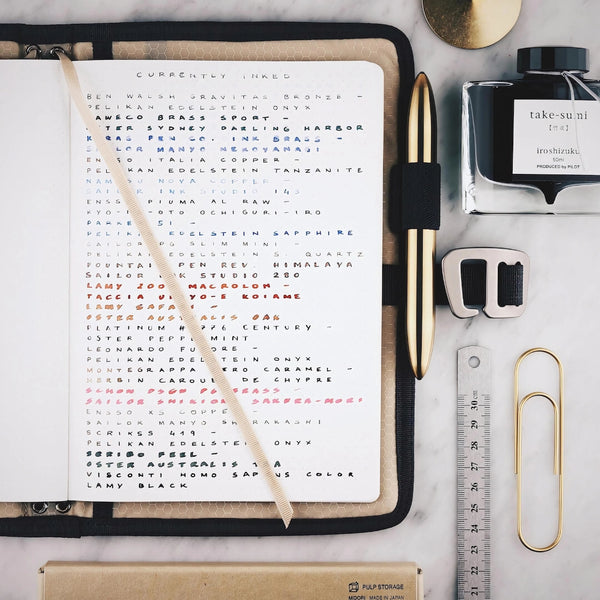 CURRENTLY INKED
BEN WALSH GRAVITAS BRONZE -
PELIKAN EDELSTEIN ONYX
KAWECO BRASS SPORT -
OSTER SYDNEY DARLING HARBOR
KARAS PEN CO. INK BRASS -
SAILOR MANYO NEKOYANAGI
ENSSO ITALIA COPPER -
PELIKAN EDELSTEIN TANZANITE
NAMISU NOVA COPPER -
SAILOR INK STUDIO 143
ENSSO PIUMA AL RAW -
KYO-NO-OTO OCHIGURI-IRO
PARKER 51 -
PELIKAN EDELSTEIN SAPPHIRE
SAILOR PG SLIM MINI -
PELIKAN EDELSTEIN S. QUARTZ
FOUNTAIN PEN REV. HIMALAYA
SAILOR INK STUDIO 280
LAMY 2000 MACROLON -
TACCIA UKIYO-E KOIAME
LAMY SAFARI -
OSTER AUSTRALIS OAK
PLATINUM #3776 CENTURY -
OSTER PEPPERMINT
LEONARDO FURORE -
PELIKAN EDELSTEIN ONYX
MONTEGRAPPA ZERO CARAMEL -
HERBIN CAROUBE DE CHYPRE
SCHON DSGN P6 BRASS -
SAILOR SHIKIORI SAKURA-MORI
ENSSO XS COPPER -
SAILOR MANYO SHIRAKASHI
SCRIKSS 419 -
PELIKAN EDELSTEIN ONYX
SCRIBO FEEL -
OSTER AUSTRALIS TEA
VISCONTI HOMO SAPIENS COLOR
LAMY BLACK
take-sumi
【竹炭】
iroshizuku
50ml
PRODUCED by PILOT
30 cm
29
28
27
26
25
24
23
22
21
PULP STORAGE
MIDORI MADE IN JAPAN